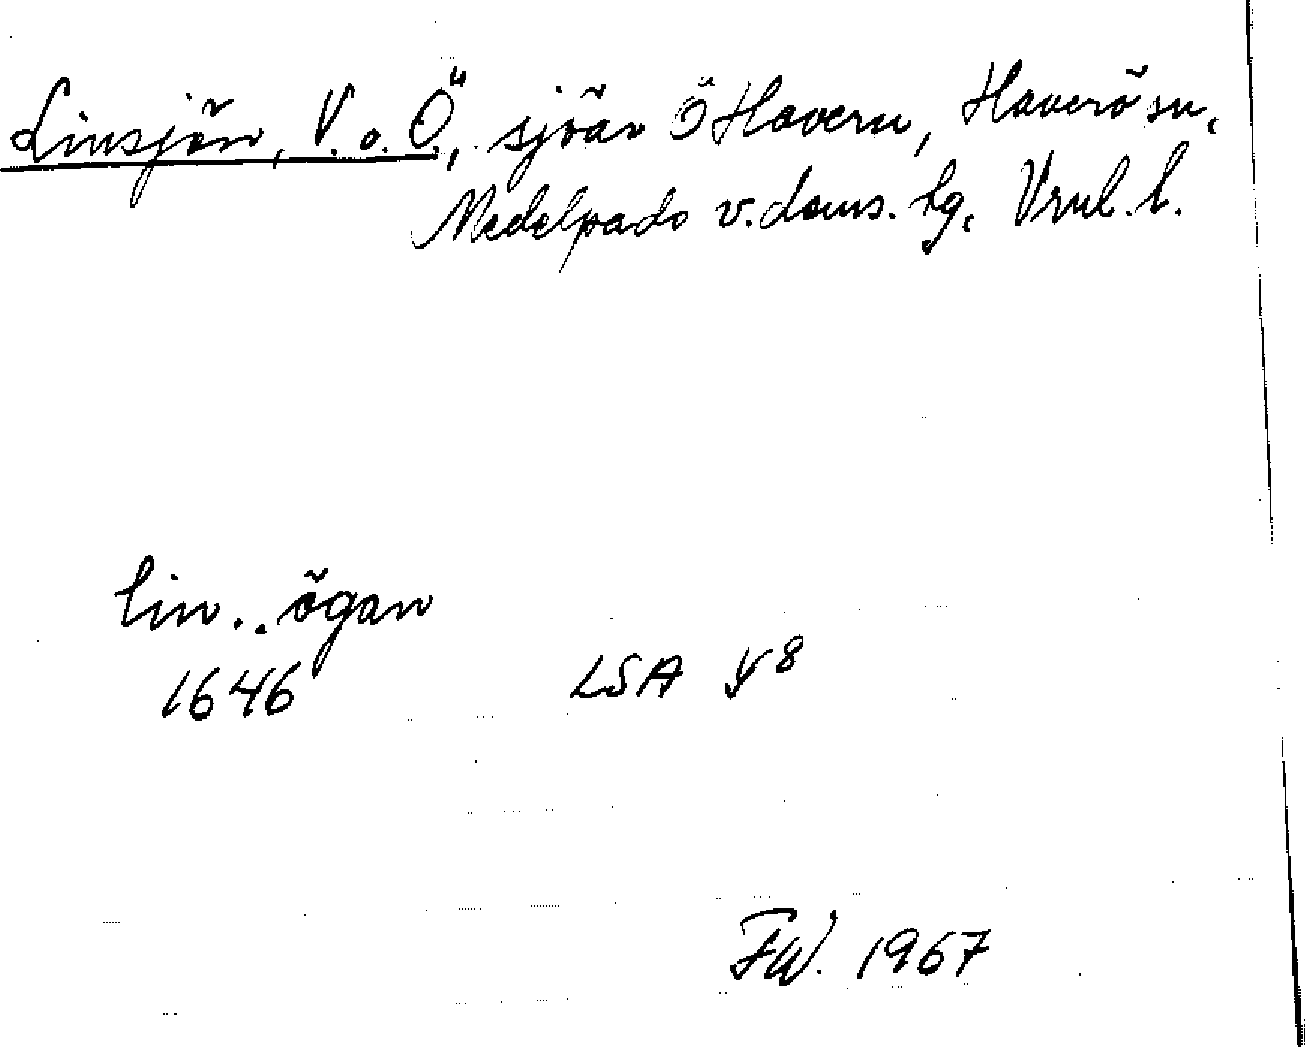 Linsjön, V. o. Ö., sjöar Ö Havern, Haverö sn,
Medelpads v. doms. tg, Vrnl. l.
lin..ögan
1646 LSA Y 8
FW. 1967